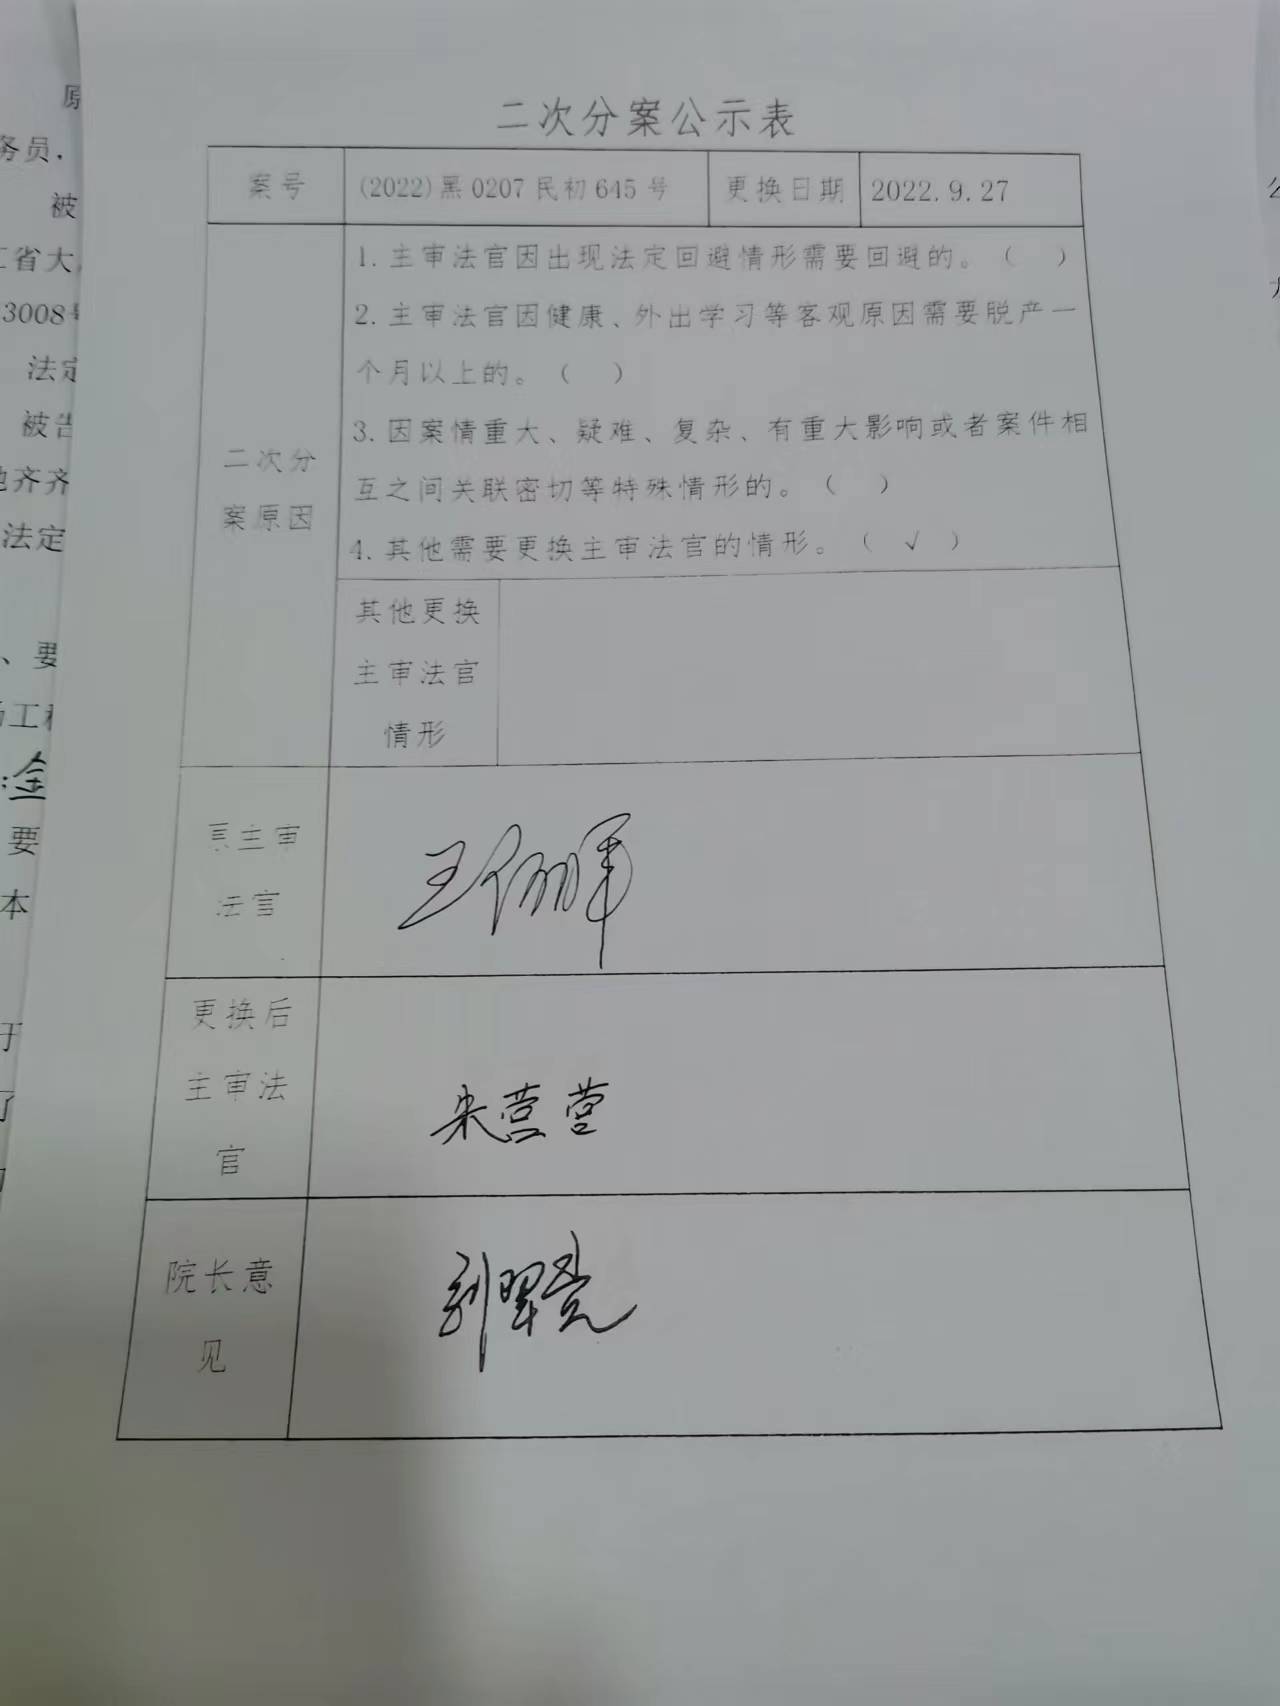 二次分案公示表
案号 (2022)黑0207民初645号 更换日期 2022.9.27
1. 主审法官因出现法定回避情形需要回避的。（ ）
2. 主审法官因健康、外出学习等客观原因需要脱产一
个月以上的。（ ）
3. 因案情重大、疑难、复杂、有重大影响或者案件相
互之间关联密切等特殊情形的。（ ）
4. 其他需要更换主审法官的情形。（ √ ）
二次分
案原因
其他更换
主审法官
情形
原主审
法官
王
更换后
主审法
官
朱营营
院长意
见
刘
务员.
被
省大
3008号
法定
被告
齐齐
法定
、要
工程
:金
要
本
于